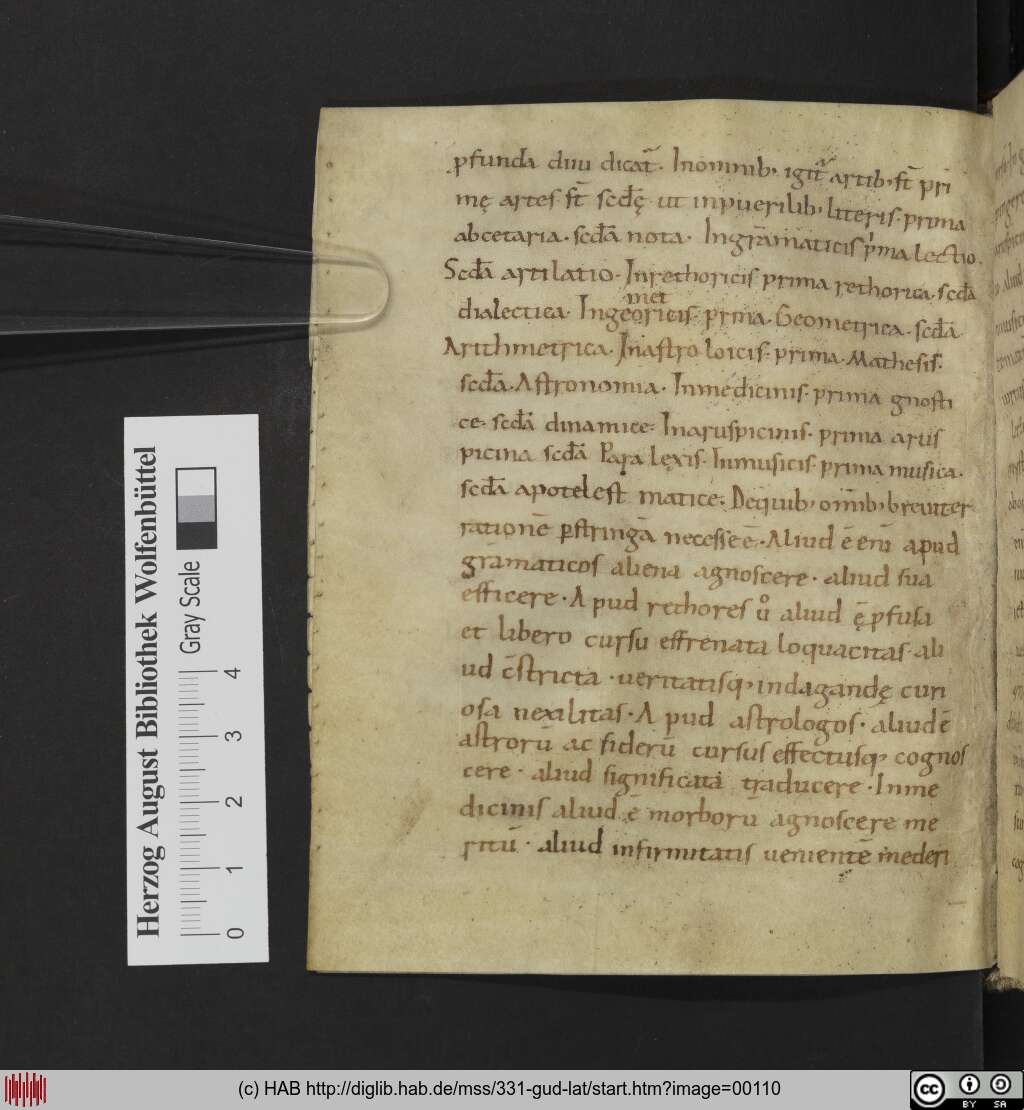 ꝑfunda diiu dicat̄. Inomnib; igit̄ artib; st̄ pri
mę artes st̄ scdę ut inpuerilib; literis. prima
abcetaria. scda nota. Ingrāmaticis prima lectio.
Scda artilatio. Inrethoricis prima rethorica. scda
dialectica. Ingeometricis. prima. Geometrica. scda
Arithmetrica. Inastroloicis. prima. Mathesis.
scda. Astronomia. Inmedicinis. prima gnosti
ce. scda dinamice. Inaruspicinis. prima arus
picina scda Paralexis. Inmusicis. prima musica.
scda apotelest matice. Dequib; omib; breuiter
rationē ꝑstringā necesse ē. Aliud ē eni apud
gramaticos aliena agnoscere. aliud sua
efficere. Apud rethores u̅o aliud ę ꝓfusa
et libero cursu effrenata loquacitas. ali
ud c̄stricta. ueritatisq; indagandę curi
osa nexilitas. Apud astrologos. aliud ē
astrorū ac siderū cursus effectusq; cognos
cere. aliud significata traducere. Inme
dicinis aliud ē morborū agnoscere me
ritū. aliud infirmitatis uenientē mederi
Herzog August Bibliothek Wolfenbüttel
Gray Scale
0 1 2 3 4
(c) HAB http://diglib.hab.de/mss/331-gud-lat/start.htm?image=00110
cc BY SA